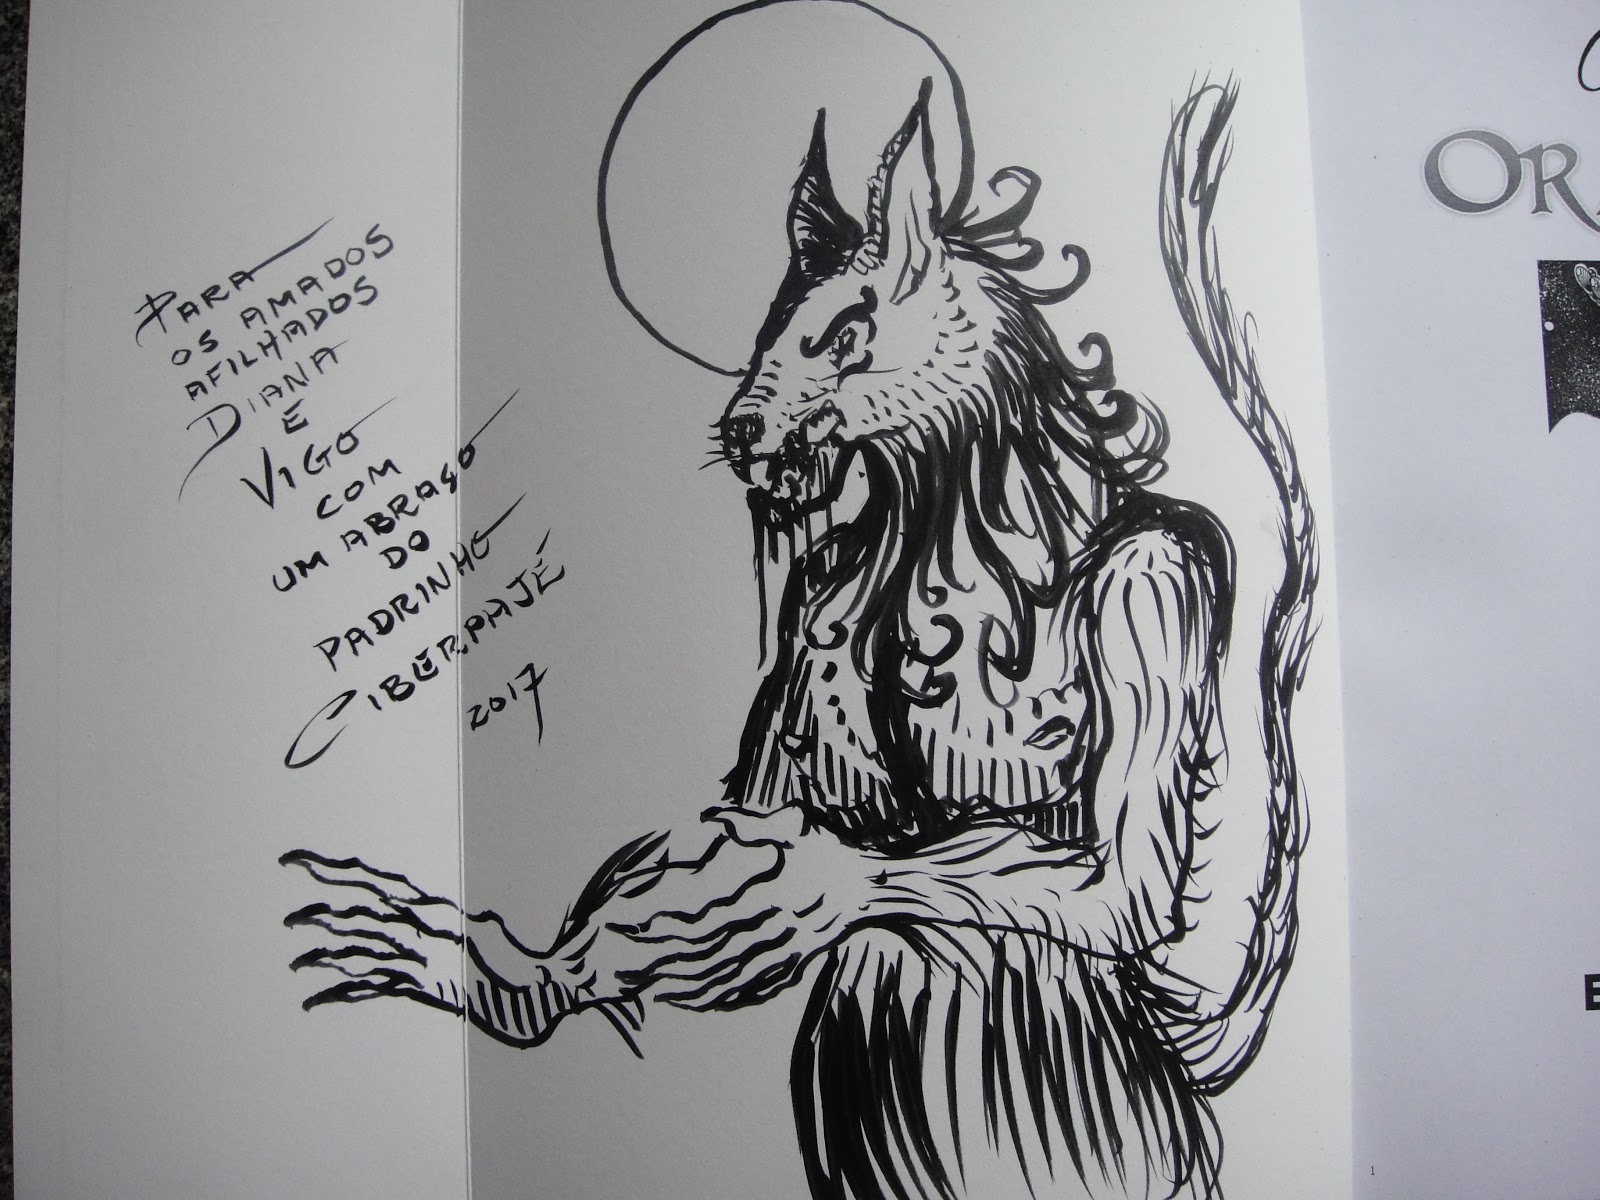 PARA
OS AMADOS
AFILHADOS
DIANA
E
VIGO
COM
UM ABRAÇO
DO
PADRINHO
CIBERPAJÉ
2017
OR
E
1